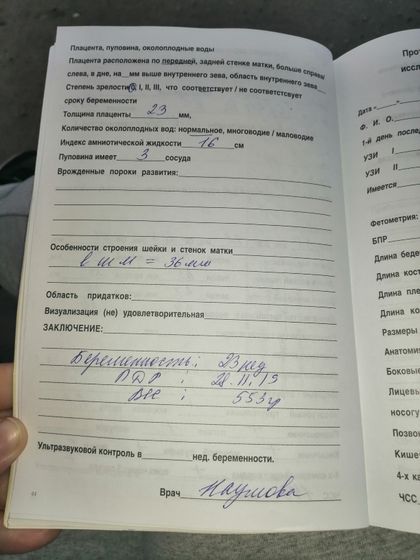 Плацента, пуповина, околоплодные воды
Плацента расположена по передней, задней стенке матки, больше справа/
слева, в дне, на__мм выше внутреннего зева, область внутреннего зева
Степень зрелости 0, I, II, III, что соответствует / не соответствует
сроку беременности
Толщина плаценты 23 мм,
Количество околоплодных вод: нормальное, многоводие / маловодие
Индекс амниотической жидкости 16 см
Пуповина имеет 3 сосуда
Врожденные пороки развития:
Особенности строения шейки и стенок матки
ℓ ш м = 36мм
Область придатков:
Визуализация (не) удовлетворительная
ЗАКЛЮЧЕНИЕ:
Беременность: 23 нед
ПДР : 28.11.19
Вес : 553 гр
Ультразвуковой контроль в нед. беременности.
Врач Наумова
44
Про
иссл
Дата «
Ф. И. О.
1-й день после
УЗИ I
УЗИ II
Имеется
Фетометрия:
БПР
Длина беде
Длина кост
Длина пле
Длина ко
Размеры
Анатоми
Боковые
Лицевы
носогу
Позвон
Кишеч
4-х ка
ЧСС